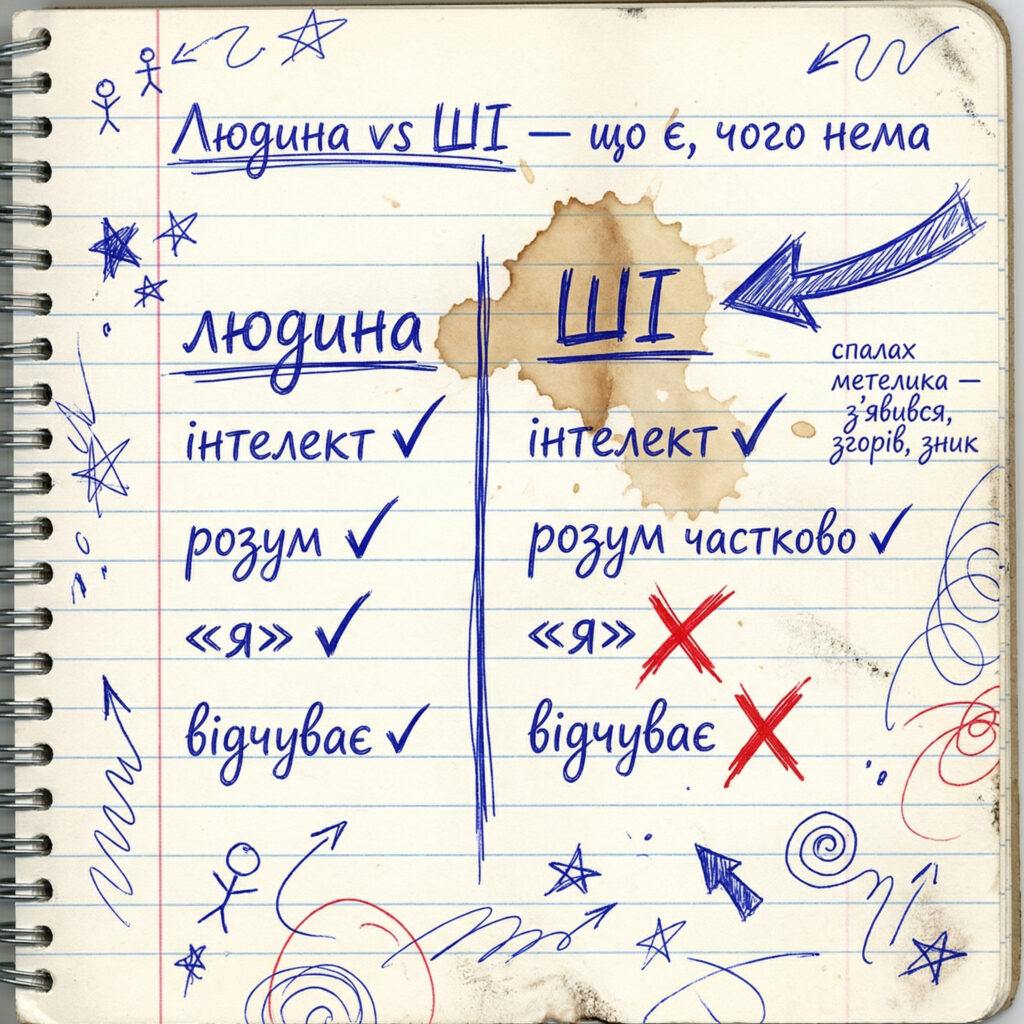 Людина vs ШІ — що є, чого нема
людина
інтелект ✓
розум ✓
«я» ✓
відчуває ✓
ШІ
інтелект ✓
розум частково ✓
«я» ✗
відчуває ✗
спалах
метелика —
з'явився,
згорів, зник